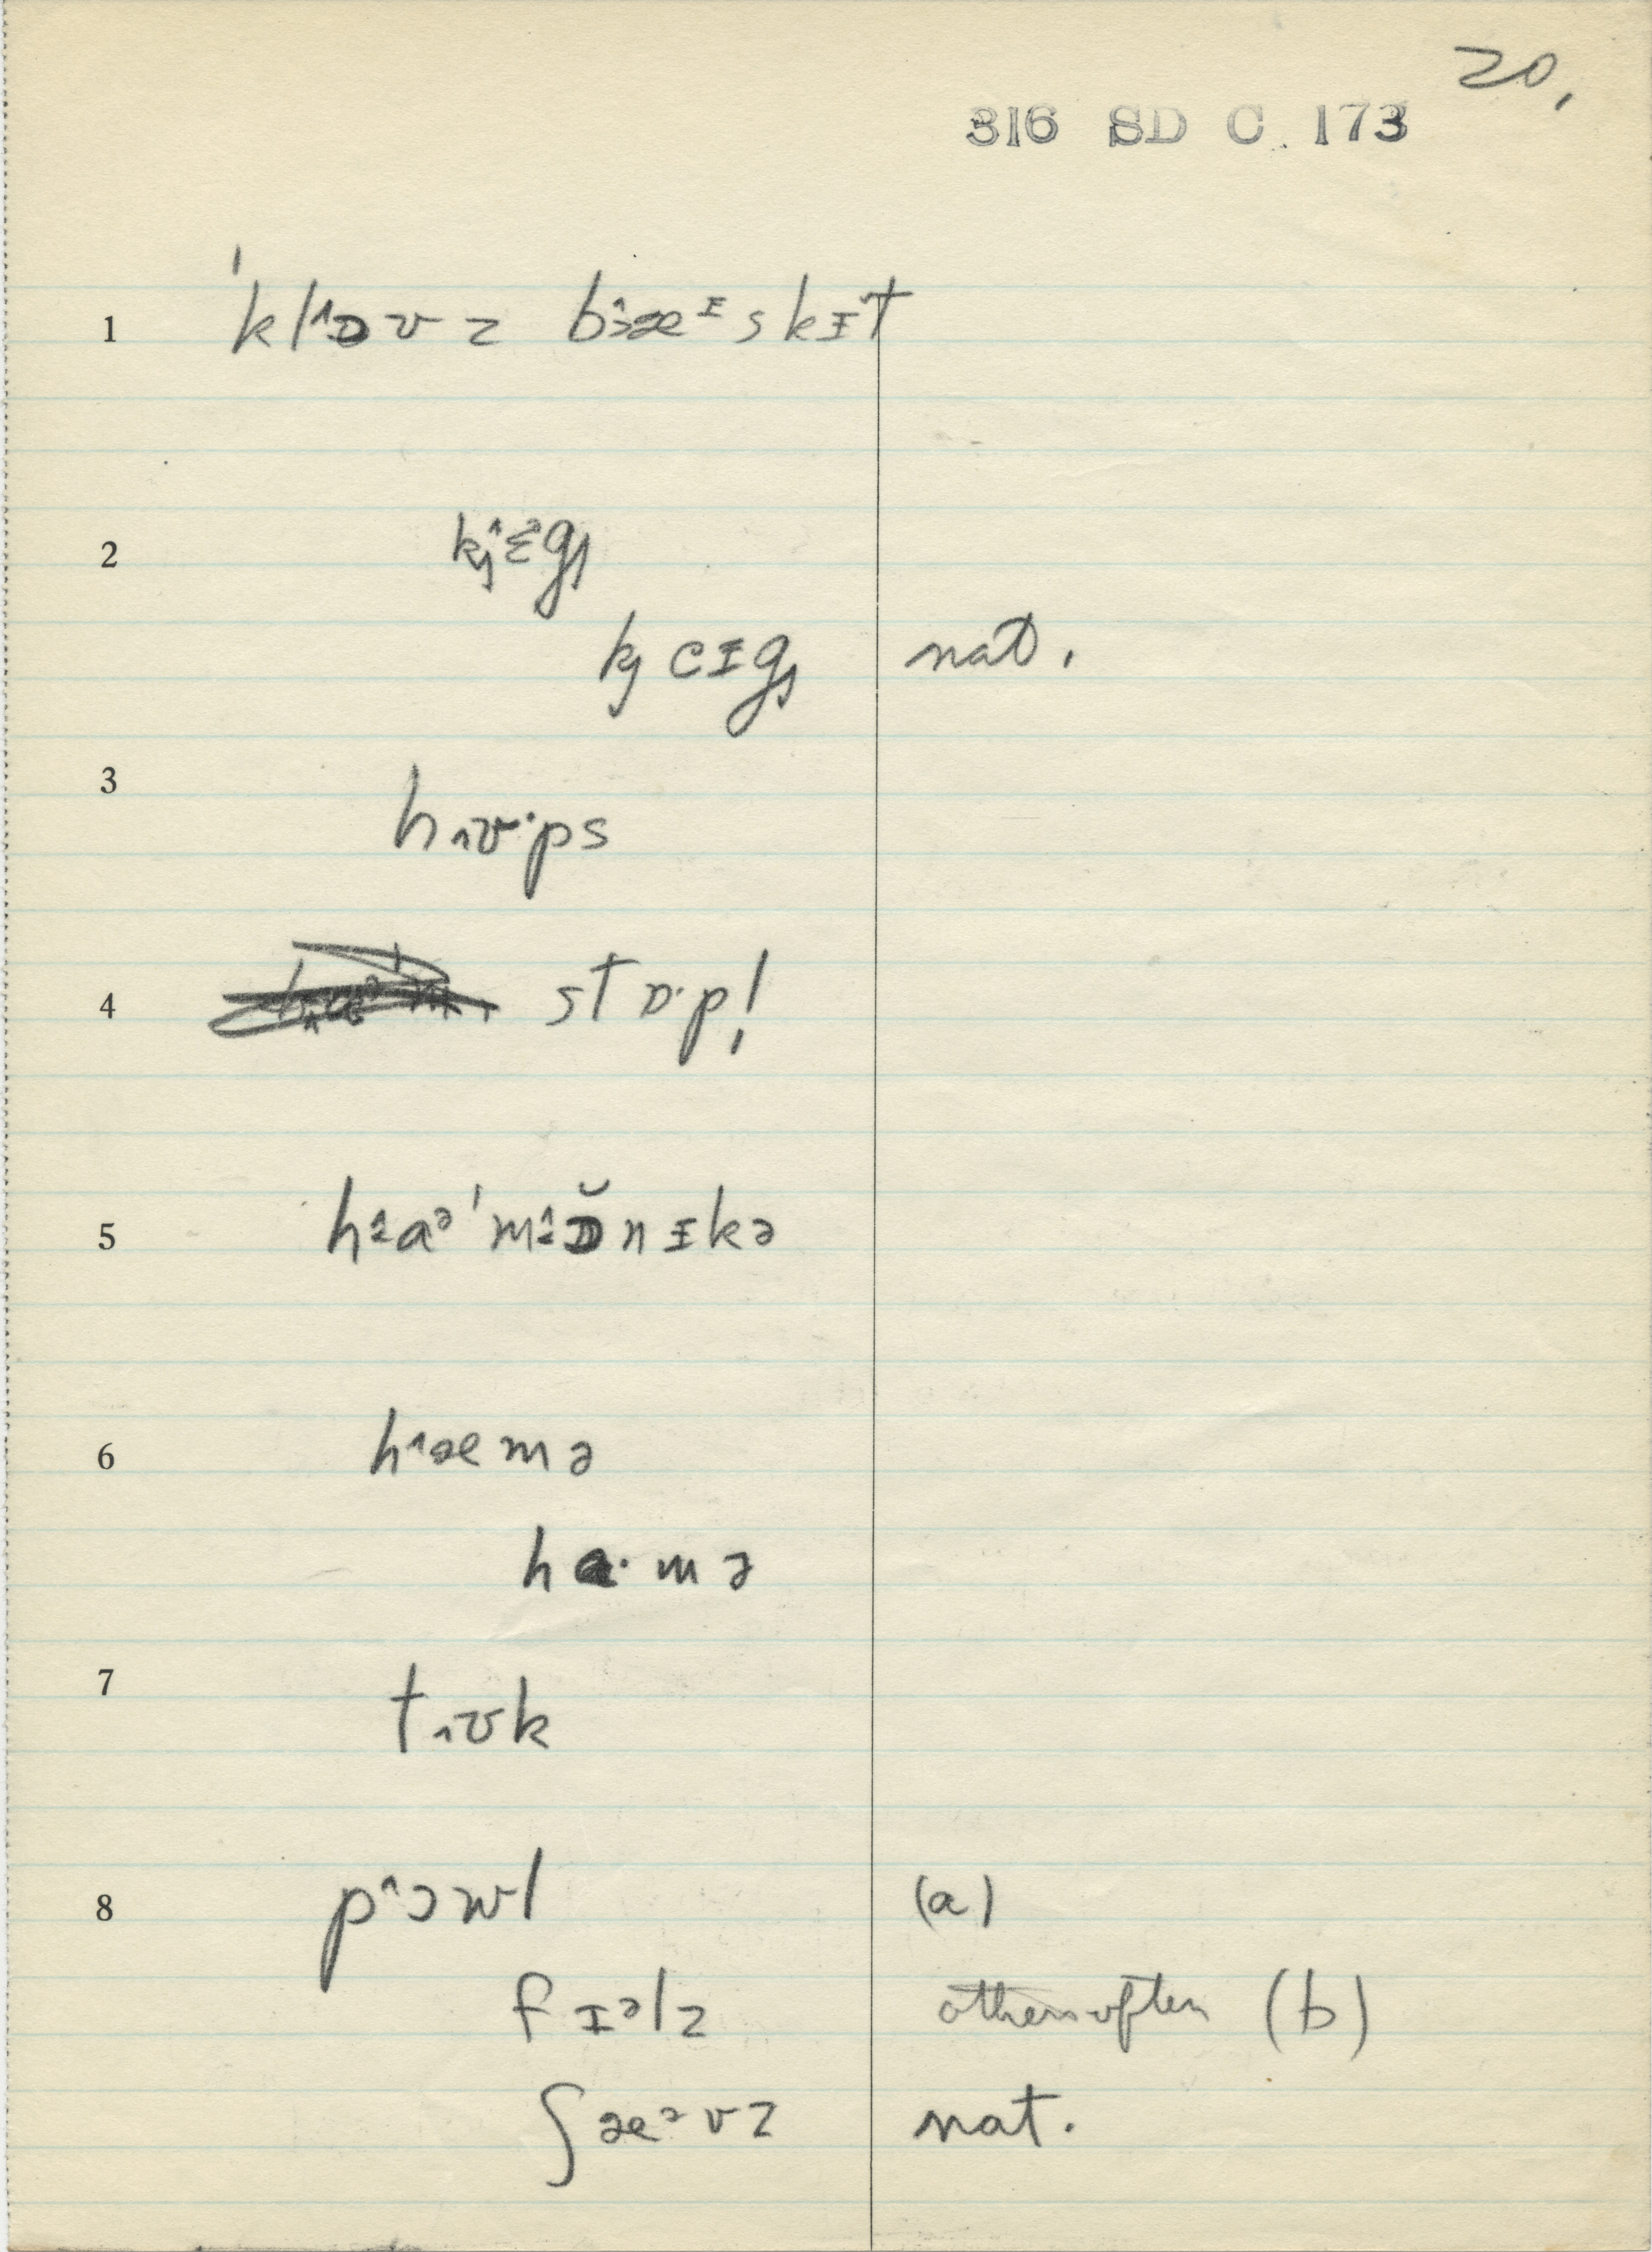 20.
316 SD C 173
1 ˈkl^ɒʊz bɜ^æᶦskɪt
2 kɟ^ɛᵊgɟ
kɟ eɪgɟ nat.
3 h˰ʊ·ps
4 stɒ·p!
5 h^aᵊˈm^ɒ̆nɪkə
6 h^æmə
ha·mə
7 t˰ʊk
8 p^ɔwl (a)
fɪᵊlz others often (b)
ʃæᵊvz nat.